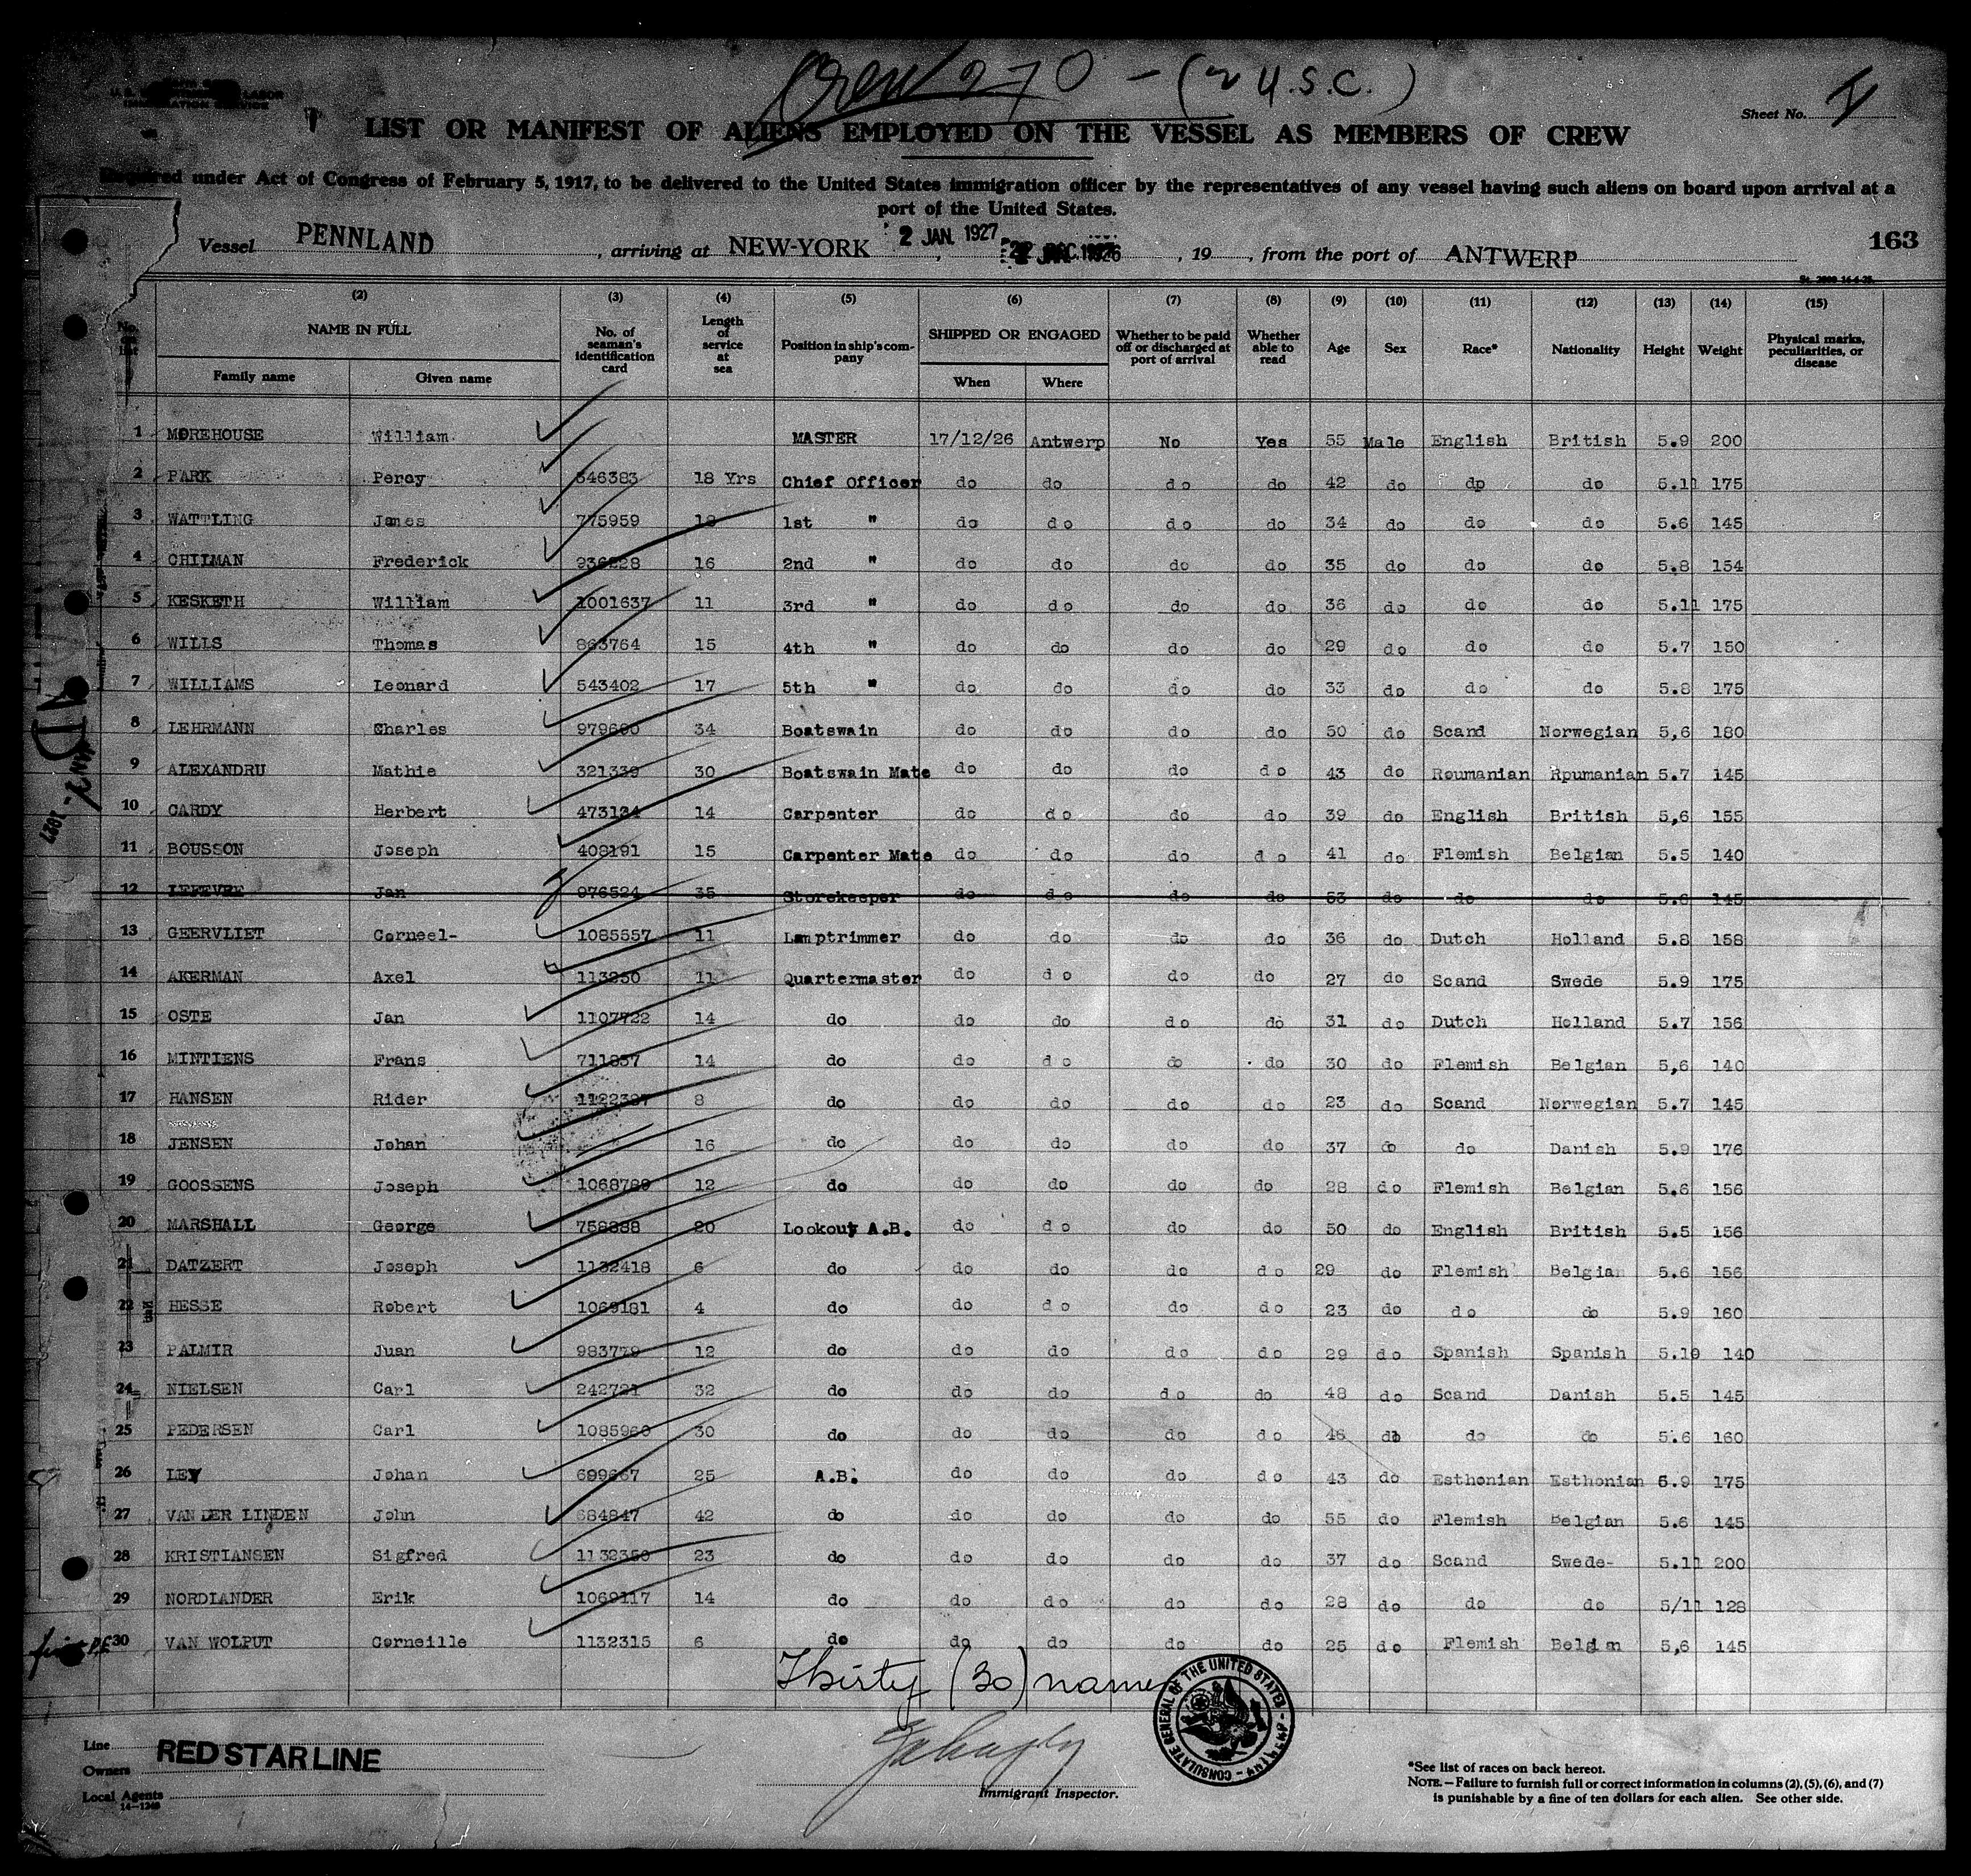 Crew 270 - (2 U.S.C.)
LABOR
IMMIGRATION SERVICE
Sheet No. I
LIST OR MANIFEST OF ALIENS EMPLOYED ON THE VESSEL AS MEMBERS OF CREW
Required under Act of Congress of February 5, 1917, to be delivered to the United States immigration officer by the representatives of any vessel having such aliens on board upon arrival at a
port of the United States.
Vessel PENNLAND, arriving at NEW-YORK 2 JAN. 1927, 19, from the port of ANTWERP
163
No. on list (2) NAME IN FULL Family name Given name (3) No. of seaman's identification card (4) Length of service at sea (5) Position in ship's company (6) SHIPPED OR ENGAGED When Where (7) Whether to be paid off or discharged at port of arrival (8) Whether able to read (9) Age (10) Sex (11) Race* (12) Nationality (13) Height (14) Weight (15) Physical marks, peculiarities, or disease
1 MOREHOUSE William MASTER 17/12/26 Antwerp No Yes 55 Male English British 5.9 200
2 PARK Percy 546383 18 Yrs Chief Officer do do do do 42 do do do 5.11 175
3 WATTLING James 775959 18 1st " do do do do 34 do do do 5.6 145
4 CHILMAN Frederick 936228 16 2nd " do do do do 35 do do do 5.8 154
5 KESKETH William 1001637 11 3rd " do do do do 36 do do do 5.11 175
6 WILLS Thomas 863764 15 4th " do do do do 29 do do do 5.7 150
7 WILLIAMS Leonard 543402 17 5th " do do do do 33 do do do 5.8 175
8 LEHRMANN Charles 34 Boatswain do do do do 50 do Scand Norwegian 5,6 180
9 ALEXANDRU Mathie 321339 30 Boatswain Mate do do do do 43 do Roumanian Rpumanian 5.7 145
10 CARDY Herbert 473124 14 Carpenter do do do do 39 do English British 5,6 155
11 BOUSSON Joseph 408191 15 Carpenter Mate do do do do 41 do Flemish Belgian 5.5 140
12 LEFEVRE Jan 976524 35 Storekeeper do do do do 53 do do do 5.6 145
13 GEERVLIET Corneel- 1085557 11 Lamptrimmer do do do do 36 do Dutch Holland 5.8 158
14 AKERMAN Axel 113250 11 Quartermaster do do do do 27 do Scand Swede 5.9 175
15 OSTE Jan 1107722 14 do do do do do 31 do Dutch Holland 5.7 156
16 MINTIENS Frans 711837 14 do do do do do 30 do Flemish Belgian 5,6 140
17 HANSEN Rider 1122387 8 do do do do do 23 do Scand Norwegian 5.7 145
18 JENSEN Johan 16 do do do do do 37 do do Danish 5.9 176
19 GOOSSENS Joseph 1068789 12 do do do do do 28 do Flemish Belgian 5.6 156
20 MARSHALL George 758888 20 Lookout A.B. do do do do 50 do English British 5.5 156
21 DATZERT Joseph 1132418 6 do do do do do 29 do Flemish Belgian 5.6 156
22 HESSE Robert 1069181 4 do do do do do 23 do do do 5.9 160
23 PALMIR Juan 983779 12 do do do do do 29 do Spanish Spanish 5.10 140
24 NIELSEN Carl 242721 32 do do do do do 48 do Scand Danish 5.5 145
25 PEDERSEN Carl 1085960 30 do do do do do 46 do do do 5.6 160
26 LEY Johan 699667 25 A.B. do do do do 43 do Esthonian Esthonian 5.9 175
27 VAN DER LINDEN John 684847 42 do do do do do 55 do Flemish Belgian 5.6 145
28 KRISTIANSEN Sigfred 1132350 23 do do do do do 37 do Scand Swede- 5.11 200
29 NORDLANDER Erik 1069117 14 do do do do do 28 do do do 5/11 128
30 VAN WOLPUT Corneille 1132315 6 do do do do do 25 do Flemish Belgian 5,6 145
Thirty (30) names
CONSULATE GENERAL OF THE UNITED STATES - ANTWERP -
Line RED STAR LINE
Owners
Local Agents
14-1240
Immigrant Inspector.
*See list of races on back hereof.
NOTE.—Failure to furnish full or correct information in columns (2), (5), (6), and (7)
is punishable by a fine of ten dollars for each alien. See other side.